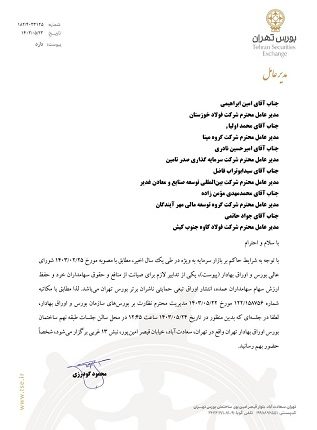 شماره: ۱۸۲/۲۰۳۳۱۲۵
تاریخ: ۱۴۰۳/۰۵/۲۳
پیوست: دارد
بورس تهران
Tehran Securities
Exchange
مدیرعامل
جناب آقای امین ابراهیمی
مدیر عامل محترم شرکت فولاد خوزستان
جناب آقای محمد اولیاء
مدیر عامل محترم شرکت گروه مپنا
جناب آقای امیرحسین نادری
مدیر عامل محترم شرکت سرمایه گذاری صدر تامین
جناب آقای سیدابوتراب فاضل
مدیر عامل محترم شرکت بین‌المللی توسعه صنایع و معادن غدیر
جناب آقای محمدمهدی مؤمن زاده
مدیر عامل محترم شرکت گروه توسعه مالی مهر آیندگان
جناب آقای جواد خاتمی
مدیر عامل محترم شرکت فولاد کاوه جنوب کیش
با سلام و احترام
با توجه به شرایط حاکم بر بازار سرمایه به ویژه در طی یک سال اخیر، مطابق با مصوبه مورخ ۱۴۰۳/۰۲/۲۵ شورای
عالی بورس و اوراق بهادار (پیوست)، یکی از تدابیر لازم برای صیانت از منافع و حقوق سهامداران خرد و حفظ
ارزش سهام سهامداران عمده، انتشار اوراق تبعی حمایتی ناشران برتر بورس تهران می‌باشد. لذا مطابق با مکاتبه
۱۲۲/۱۵۸۷۵۴ مورخ ۱۴۰۳/۰۵/۲۲ مدیریت محترم نظارت بر بورس‌های سازمان بورس و اوراق بهادار،
مقتضی است در جلسه‌ای که بدین منظور در تاریخ ۱۴۰۳/۰۵/۲۴ ساعت ۱۲:۴۵ در محل سالن جلسات طبقه نهم ساختمان
بورس اوراق بهادار تهران واقع در تهران، سعادت آباد، خیابان قیصر امین‌پور، نبش ۱۳ غربی برگزار می‌شود، شخصاً
حضور بهم رسانید.
محمود گودرزی
www.tse.ir
تهران، سعادت آباد، بلوار قیصر امین پور، ساختمان بورس تهران